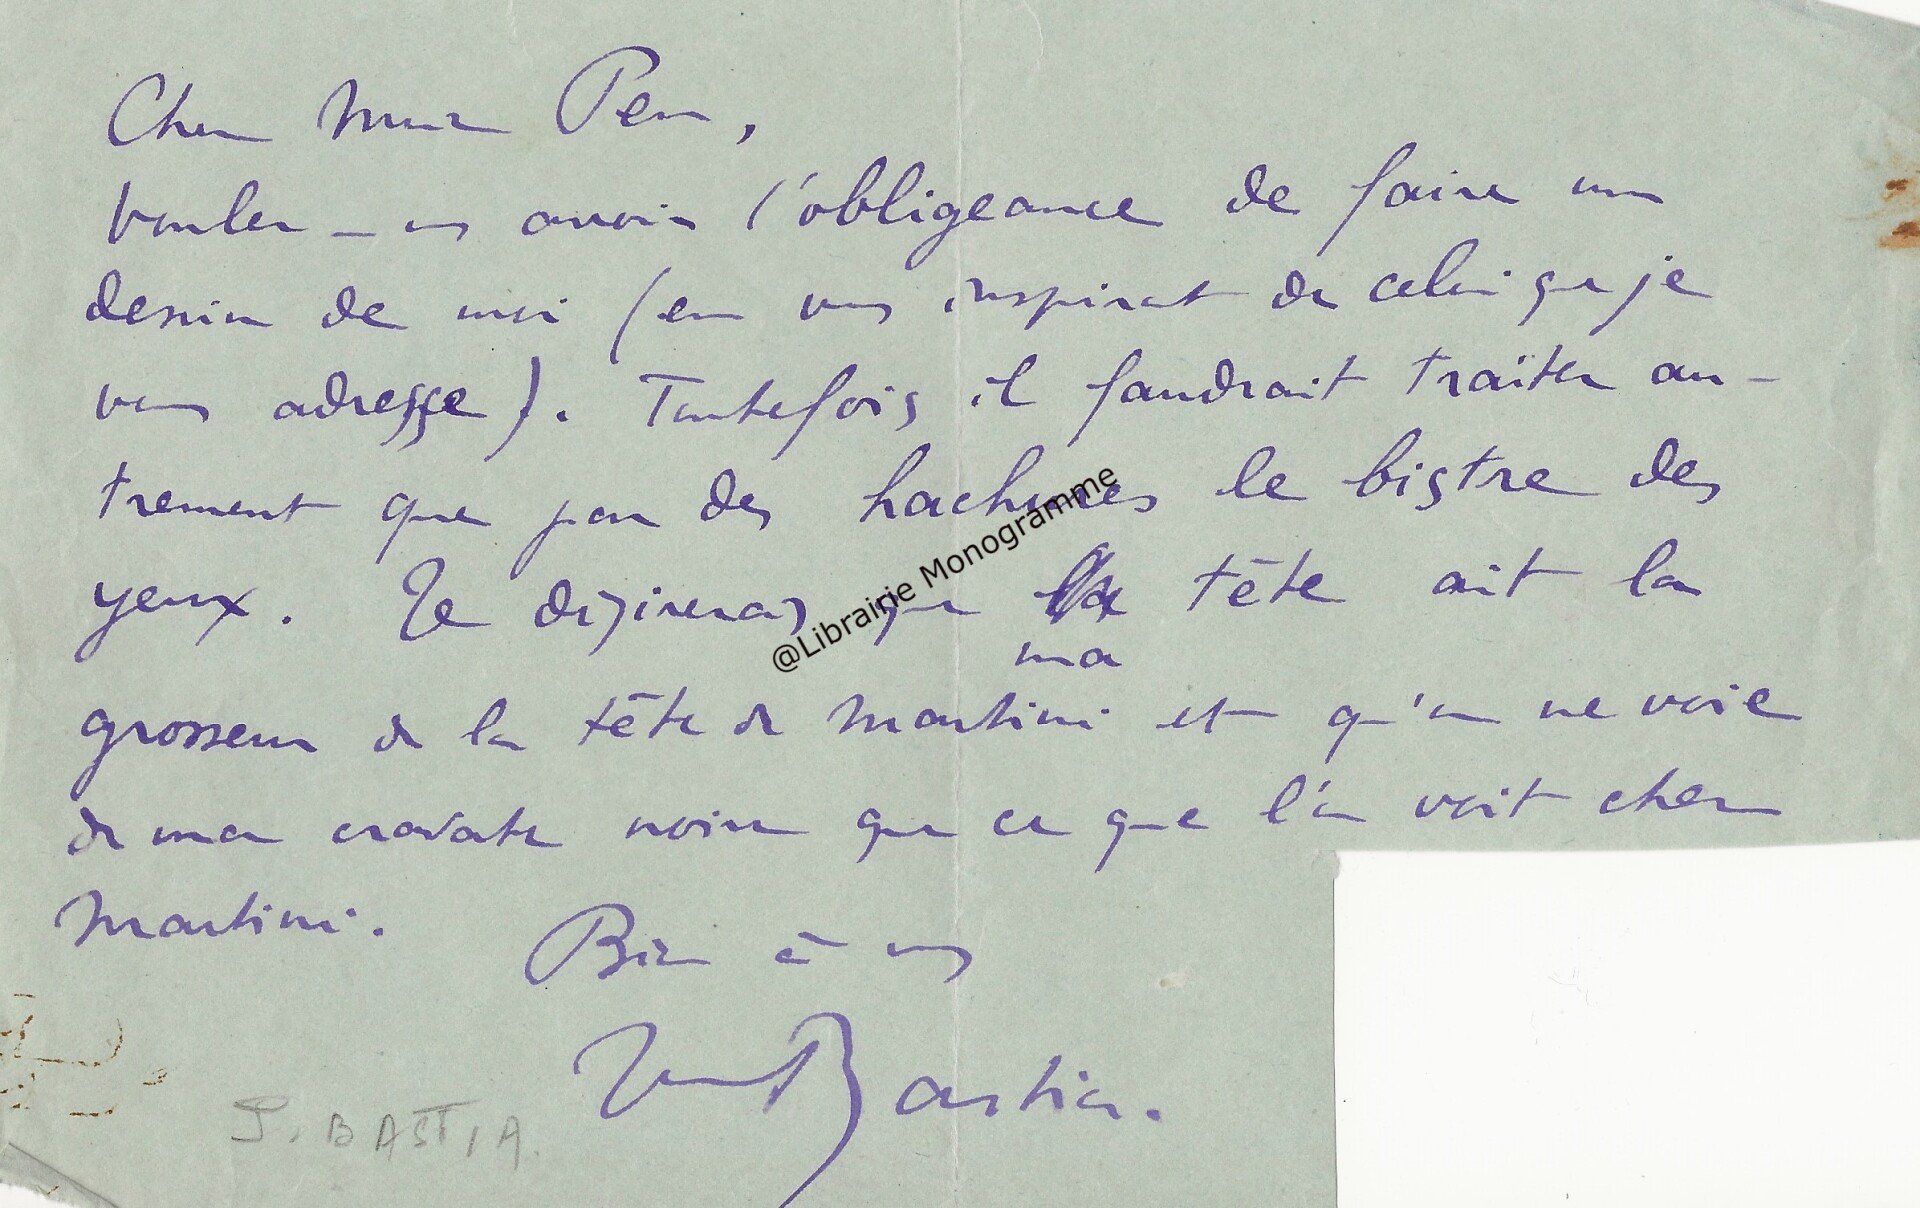 Cher Mon Pen,
Voulez-vous avoir l'obligeance de faire un
dessin de moi (en vous inspirant de celui que je
vous adresse). Toutefois il faudrait traiter au-
trement que par des hachures le bistre des
yeux. Je désirerais que la tête ait la
ma
grosseur de la tête de Martini et qu'on ne voie
de ma cravate noire que ce que l'on voit chez
Martini.
Bien à vous
Jean Bastia.
J. BASTIA.
@Librairie Monogramme